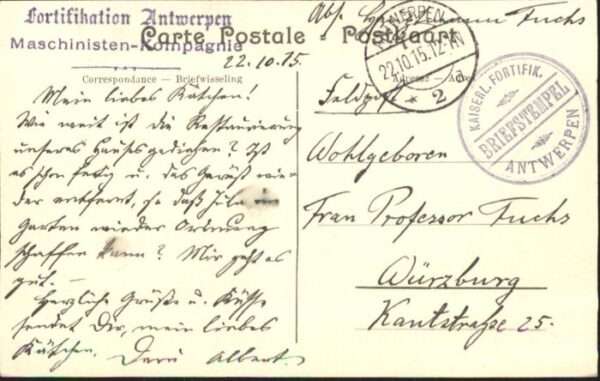 Fortifikation Antwerpen
Maschinisten-Kompagnie
Carte Postale - Postkaart
Abs. Hauptmann Fuchs
22.10.15.
Correspondance — Briefwisseling
Mein liebes Kätchen!
Wie weit ist die Restaurierung
unseres Hauses gediehen? Ist
es schon fertig u. das Gerüst wie-
der entfernt, so daß Julie im
Garten wieder Ordnung
schaffen kann? Mir geht es
gut. —
Herzliche Grüße u. Küsse
sendet Dir, mein liebes
Kätchen, Dein Albert.
22.10.15.12
* 2 a
KAISERL. FORTIFIK.
BRIEFSTEMPEL
ANTWERPEN
Feldpost
Wohlgeboren
Frau Professor Fuchs
Würzburg
Kantstraße 25.